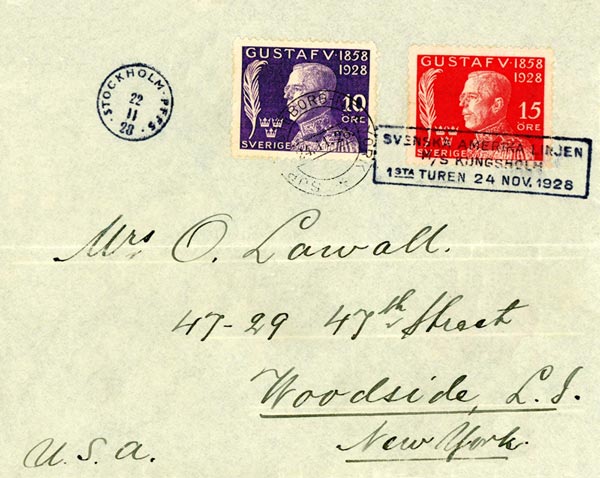 GUSTAF V · 1858
1928
10
ÖRE
SVERIGE
GUSTAF V · 1858
1928
15
ÖRE
SVERIGE
STOCKHOLM · PFFS ·
22
11
28
SVENSKA AMERIKA LINJEN
M/S KUNGSHOLM
1STA TUREN 24 NOV. 1928
Mrs O. Lawall.
47-29 47th Street
Woodside, L.I.
New York.
U.S.A.